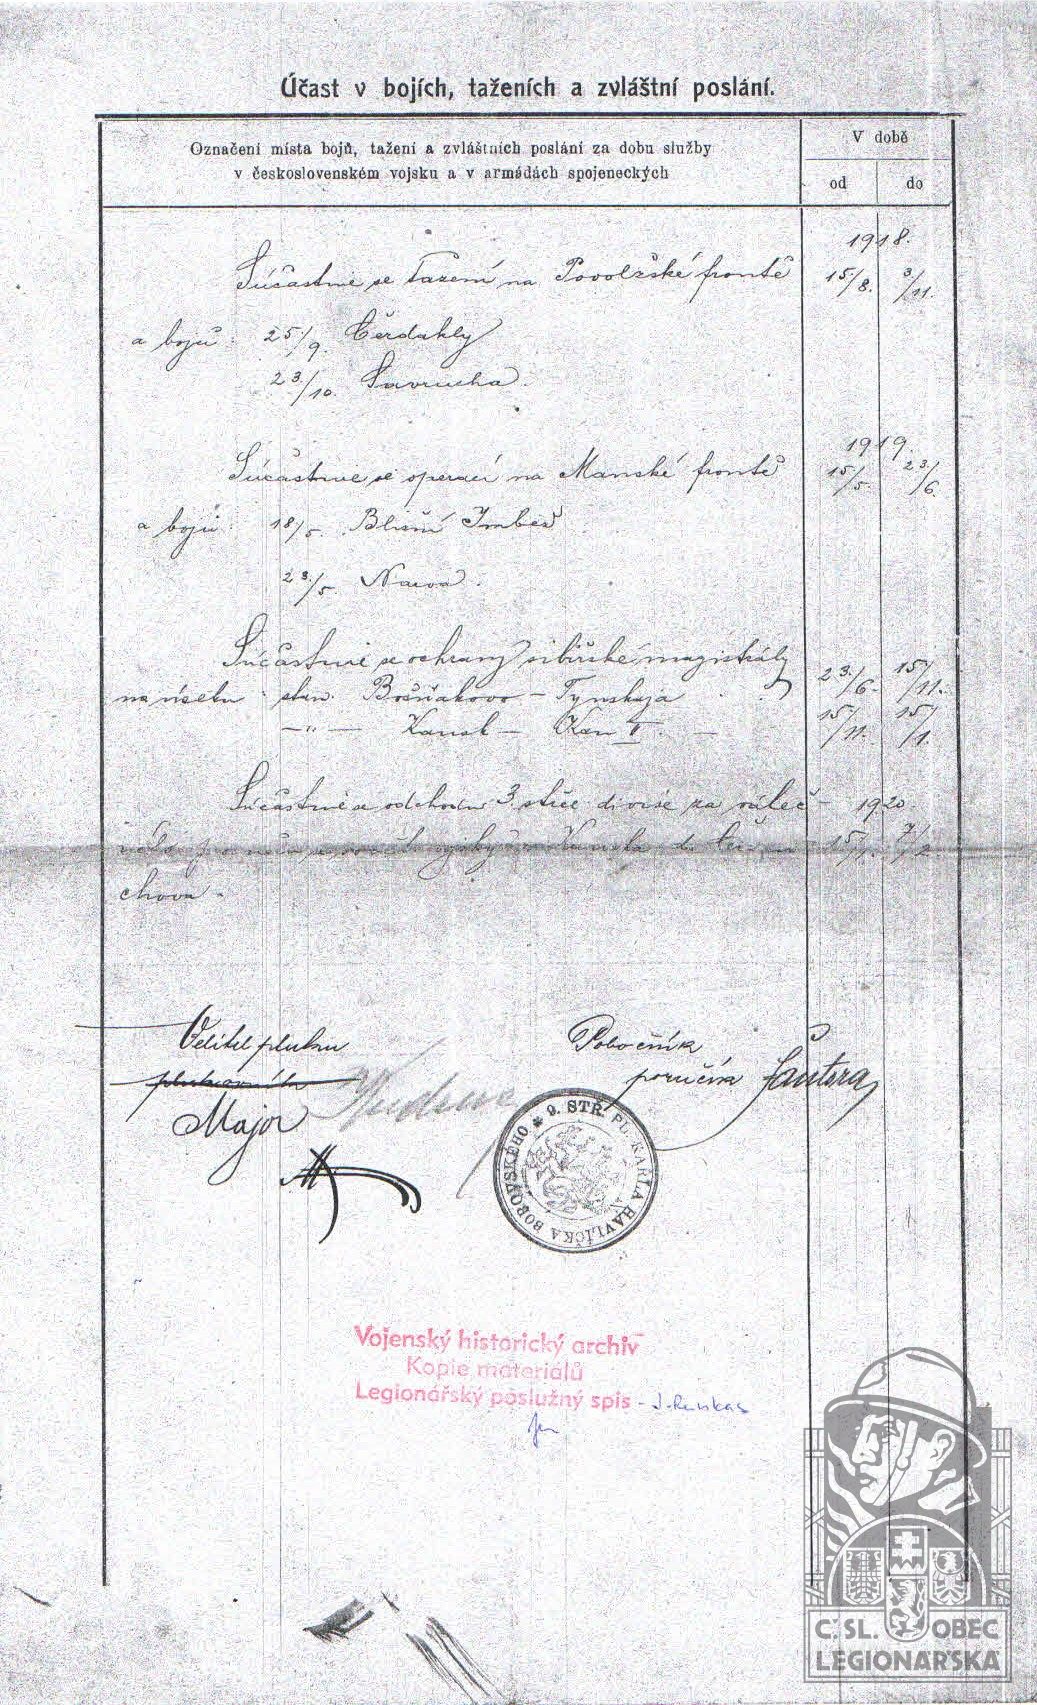 Účast v bojích, taženích a zvláštní poslání.
Označení místa bojů, tažení a zvláštních poslání za dobu služby
v československém vojsku a v armádách spojeneckých
V době
od do
1918.
Súčastnil se tažení na Povolžské frontě 15/8. 3/11.
a bojů: 25/9. Čerdakly
23/10.
1919.
Súčastnil se operací na Manské frontě 15/5. 23/6.
a bojů: 18/5. Imbež
23/5. Narva.
Súčastnil se ochrany sibiřské magistrály
na úseku stan. Bošňakovo - Tynskaja 23./6. 15/11.
-"- Kansk - Kan II. - 15/11. 15/1.
Súčastnil se odchodu 3. střel. divise za váleč- 1920.
Kanska do 15/1. 7/2.
chova.
Velitel pluku
Pobočník
poručík
Major
9. STŘ. PL. KARLA HAVLÍČKA BOROVSKÉHO
Vojenský historický archiv
Kopie materiálů
Legionářský poslužný spis -
Č. SL. OBEC
LEGIONÁŘSKÁ